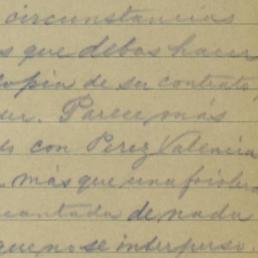 circunstancias
s que debas hacer
copia de su contrato,
ser. Parece más
do con Perez Valencia
más que una
encantada de nada
que no se interpuso.